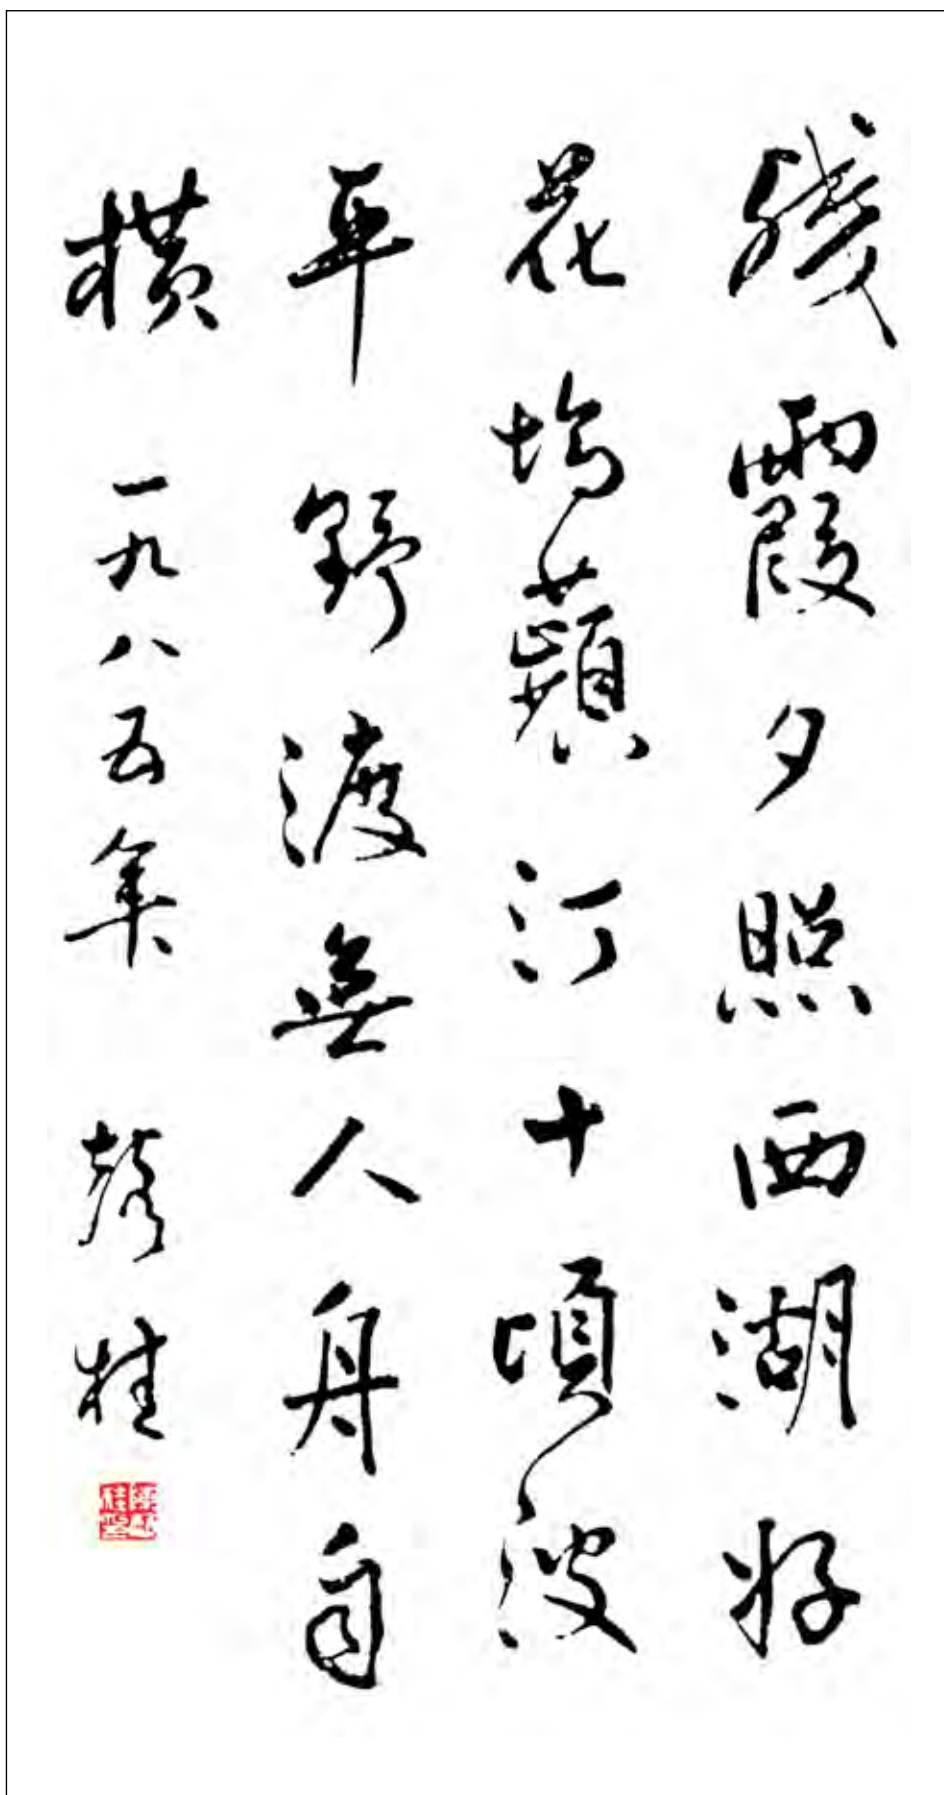 殘霞夕照西湖好
花塢蘋汀十頃波
平野渡無人舟自
横 一九八五年 桂